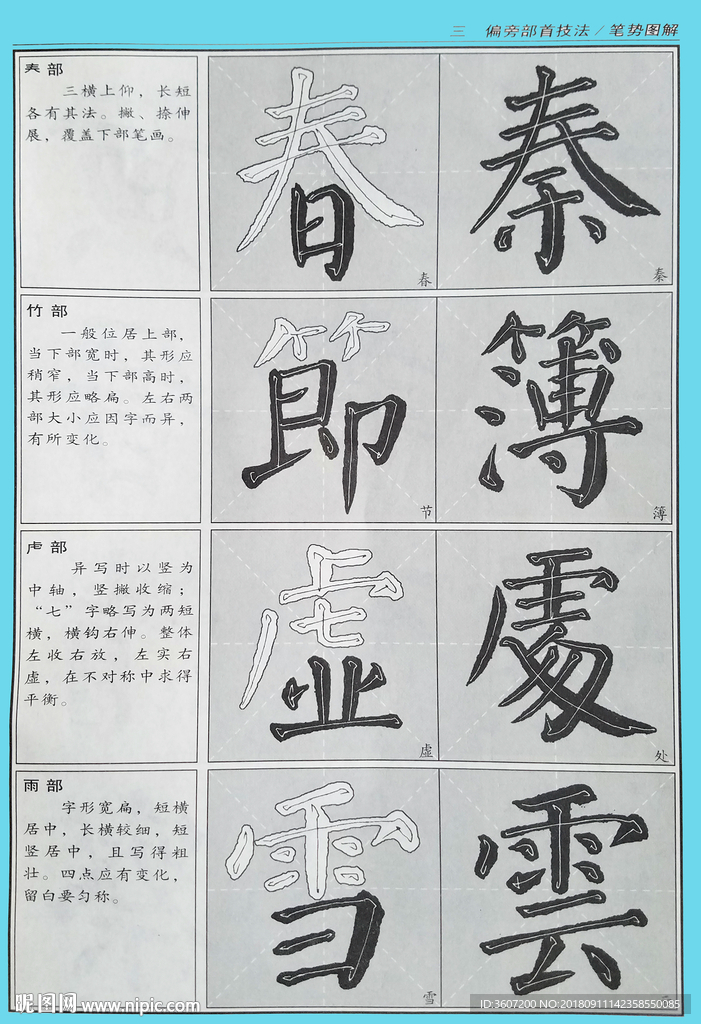 三 偏旁部首技法/笔势图解
𡗗部
三横上仰，长短
各有其法。撇、捺伸
展，覆盖下部笔画。
春
春
秦
秦
竹部
一般位居上部，
当下部宽时，其形应
稍窄，当下部高时，
其形应略扁。左右两
部大小应因字而异，
有所变化。
節
节
簿
簿
虍部
异写时以竖为
中轴，竖撇收缩；
“七”字略写为两短
横，横钩右伸。整体
左收右放，左实右
虚，在不对称中求得
平衡。
虚
虚
處
处
雨部
字形宽扁，短横
居中，长横较细，短
竖居中，且写得粗
壮。四点应有变化，
留白要匀称。
雪
雪
雲
昵图网 www.nipic.com
ID:3607200 NO:20180911142358550085